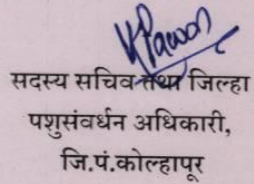 KPawar
सदस्य सचिव तथा जिल्हा
पशुसंवर्धन अधिकारी,
जि.प.कोल्हापूर